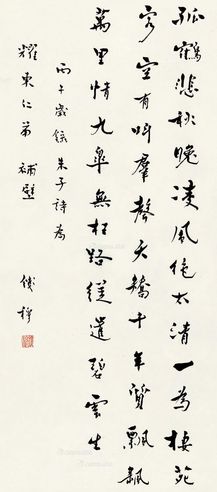 孤鶴悲秋晚凌風絕太清一為棲苑
客空有叫群聲夭矯千年質飄飖
萬里情九皋無枉路從遣碧雲生
丙午歲錄朱子詩為
耀東仁弟 補壁
錢穆